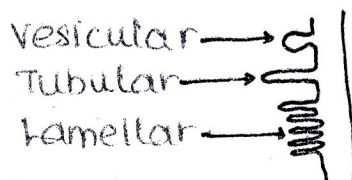 Vesicular
Tubular
Lamellar